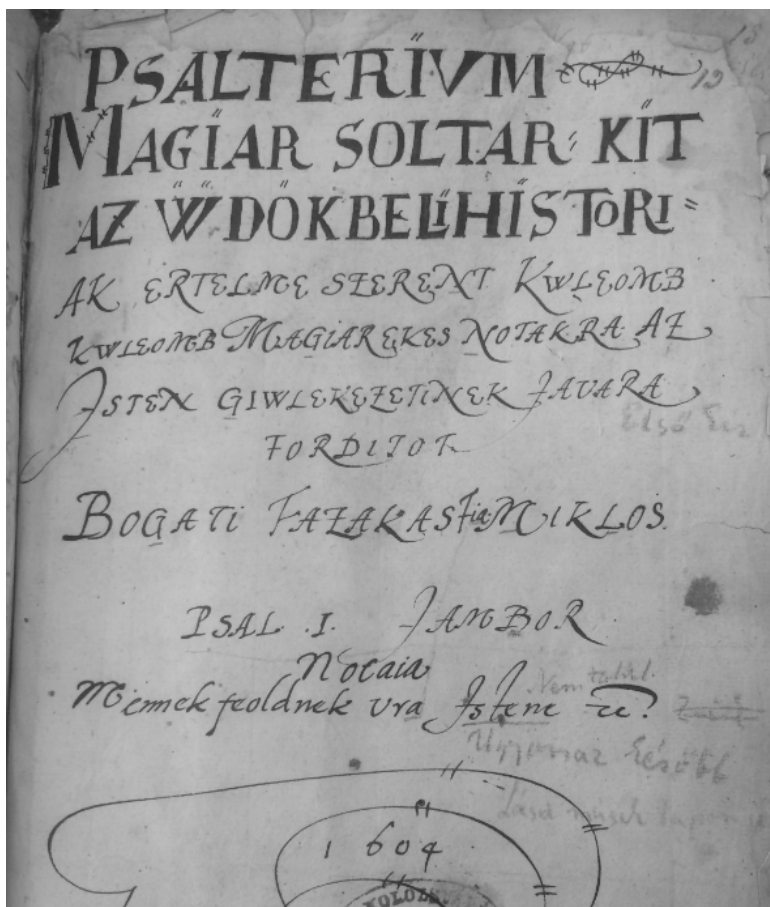 PSALTERIVM
19
MAGIAR SOLTAR: KIT
AZ ẄDÖKBELI HISTORI=
AK ERTELME SZERENT KWLEOMB
KWLEOMB MAGIAR EKES NOTAKRA AZ
ISTEN GIWLEKEZETINEK JAVARA
FORDITOT
BOGATI FAZAKAS Fia MIKLOS.
PSAL .I. JAMBOR
Notaia
Mennek feoldnek Vra Istene
1604
KOLOZS